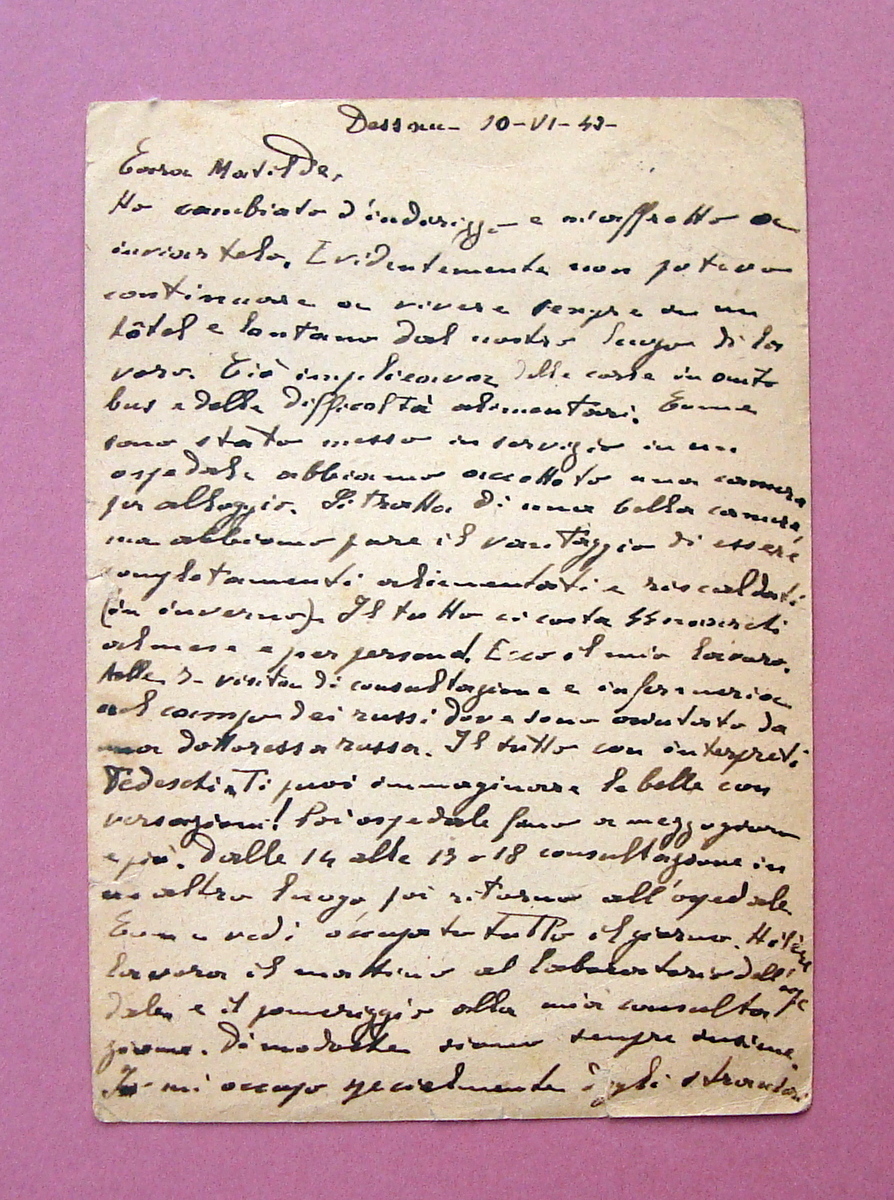 Dessau - 10-VI-42-
Cara Matilde,
Ho cambiato d'indirizzo e m'affretto a
inviartelo. Evidentemente non potevo
continuare a vivere sempre in un
hôtel e lontano dal nostro luogo di la
voro. Ciò implicava delle corse in auto
bus e delle difficoltà alimentari. Come
sono stato messo in servizio in un
ospedale abbiamo accettato una camera
per alloggio. Si tratta di una bella camera,
ma abbiamo pure il vantaggio di essere
completamenti alimentati e riscaldati
(in inverno). Il tutto ci costa 55 marchi
al mese e per persona. Ecco il mio lavoro.
Alle 7- visita di consultazione e infermeria
nel campo dei russi dove sono aiutato da
una dottoressa russa. Il tutto con interpreti
Tedeschi. Ti puoi immaginare le belle con
versazioni! Poi ospedale fino a mezzogiorno
e più. Dalle 14 alle 17 o 18 consultazione in
un altro luogo poi ritorno all'ospedale.
Come vedi occupato tutto il giorno.
lavora il mattino al laboratorio dell'ospe
dale e il pomeriggio alla mia consulta
zione. Di modoche siamo sempre insieme.
Io mi occupo specialmente degli stranieri